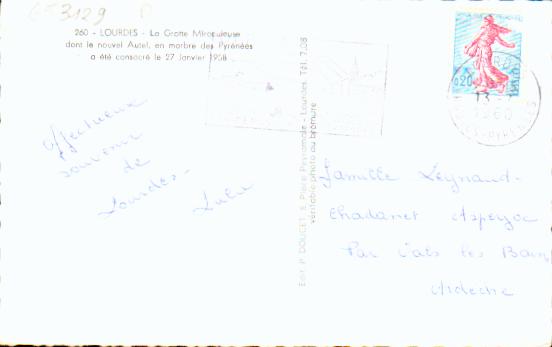 GF 3129 P
260 - LOURDES - La Grotte Miraculeuse
dont le nouvel Autel, en marbre des Pyrénées
a été consacré le 27 Janvier 1958
0,20
13
1960
Affectueux
souvenir
de
Lourdes -
Lulu
Edit. P. DOUCET, 5, Place Peyramale - Lourdes. Tél. 7.08
véritable photo au bromure
Famille Leynaud -
Chadanet Asperjoc
Par Vals les Bains
Ardèche